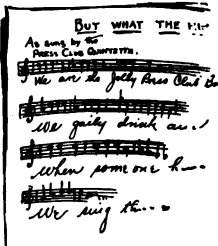 BUT WHAT THE
As sung by the
PRESS CLUB QUINTETTE.
We are the Jolly Press Club
We gaily drink an...
when some one h....
We sing th....